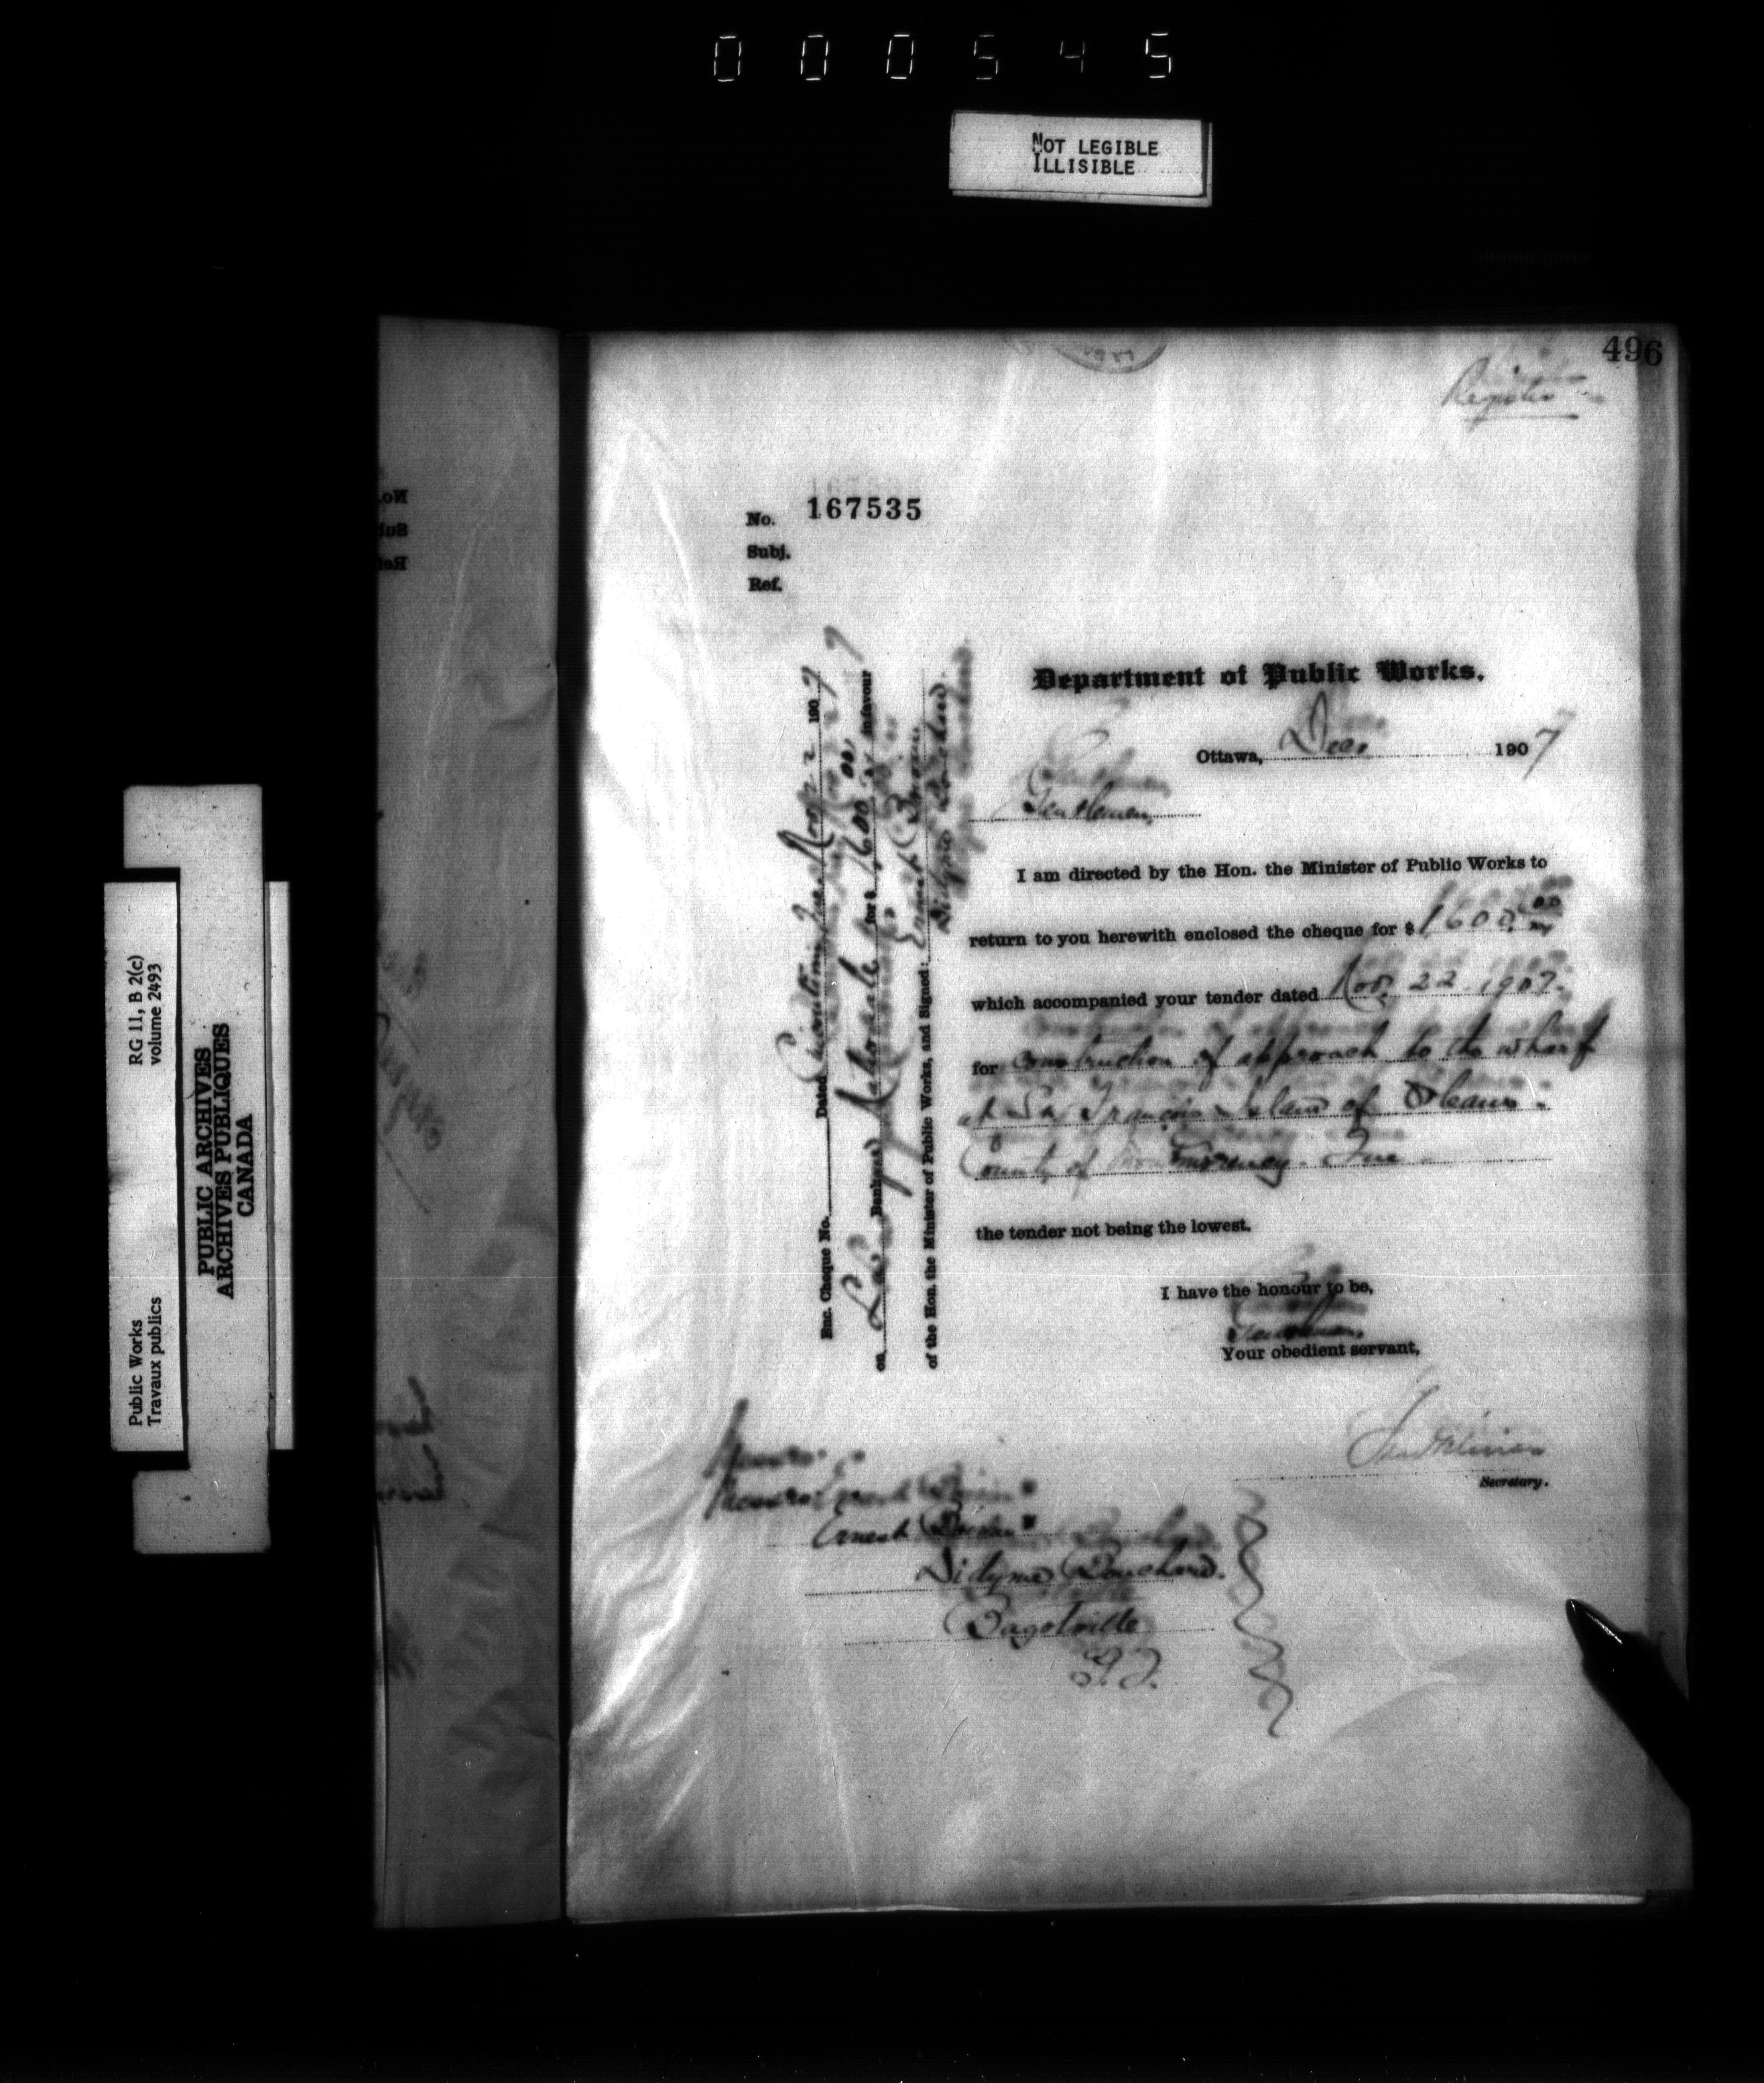 000545
NOT LEGIBLE
ILLISIBLE
496
Register
No. 167535
Subj.
Ref.
Department of Public Works.
Ottawa, Dec. 1907
Gentlemen,
I am directed by the Hon. the Minister of Public Works to
return to you herewith enclosed the cheque for $ 1600. 00
which accompanied your tender dated Nov. 22 - 1907.
for construction of approach to the wharf
at St. François Island of Orleans.
County of Montmorency. Que.
the tender not being the lowest.
I have the honour to be,
Gentlemen,
Your obedient servant,
Secretary.
Enc. Cheque No. Dated Chicoutimi, Que. Nov. 1907
on La Banque Nationale for $ 1600 00 in favour
of the Hon. the Minister of Public Works, and Signed:
Ernest
Didyme Bouchard.
Messrs
Ernest
Didyme Bouchard.
Bagotville
P.Q.
Public Works
Travaux publics
RG 11, B 2(c)
volume 2493
PUBLIC ARCHIVES
ARCHIVES PUBLIQUES
CANADA